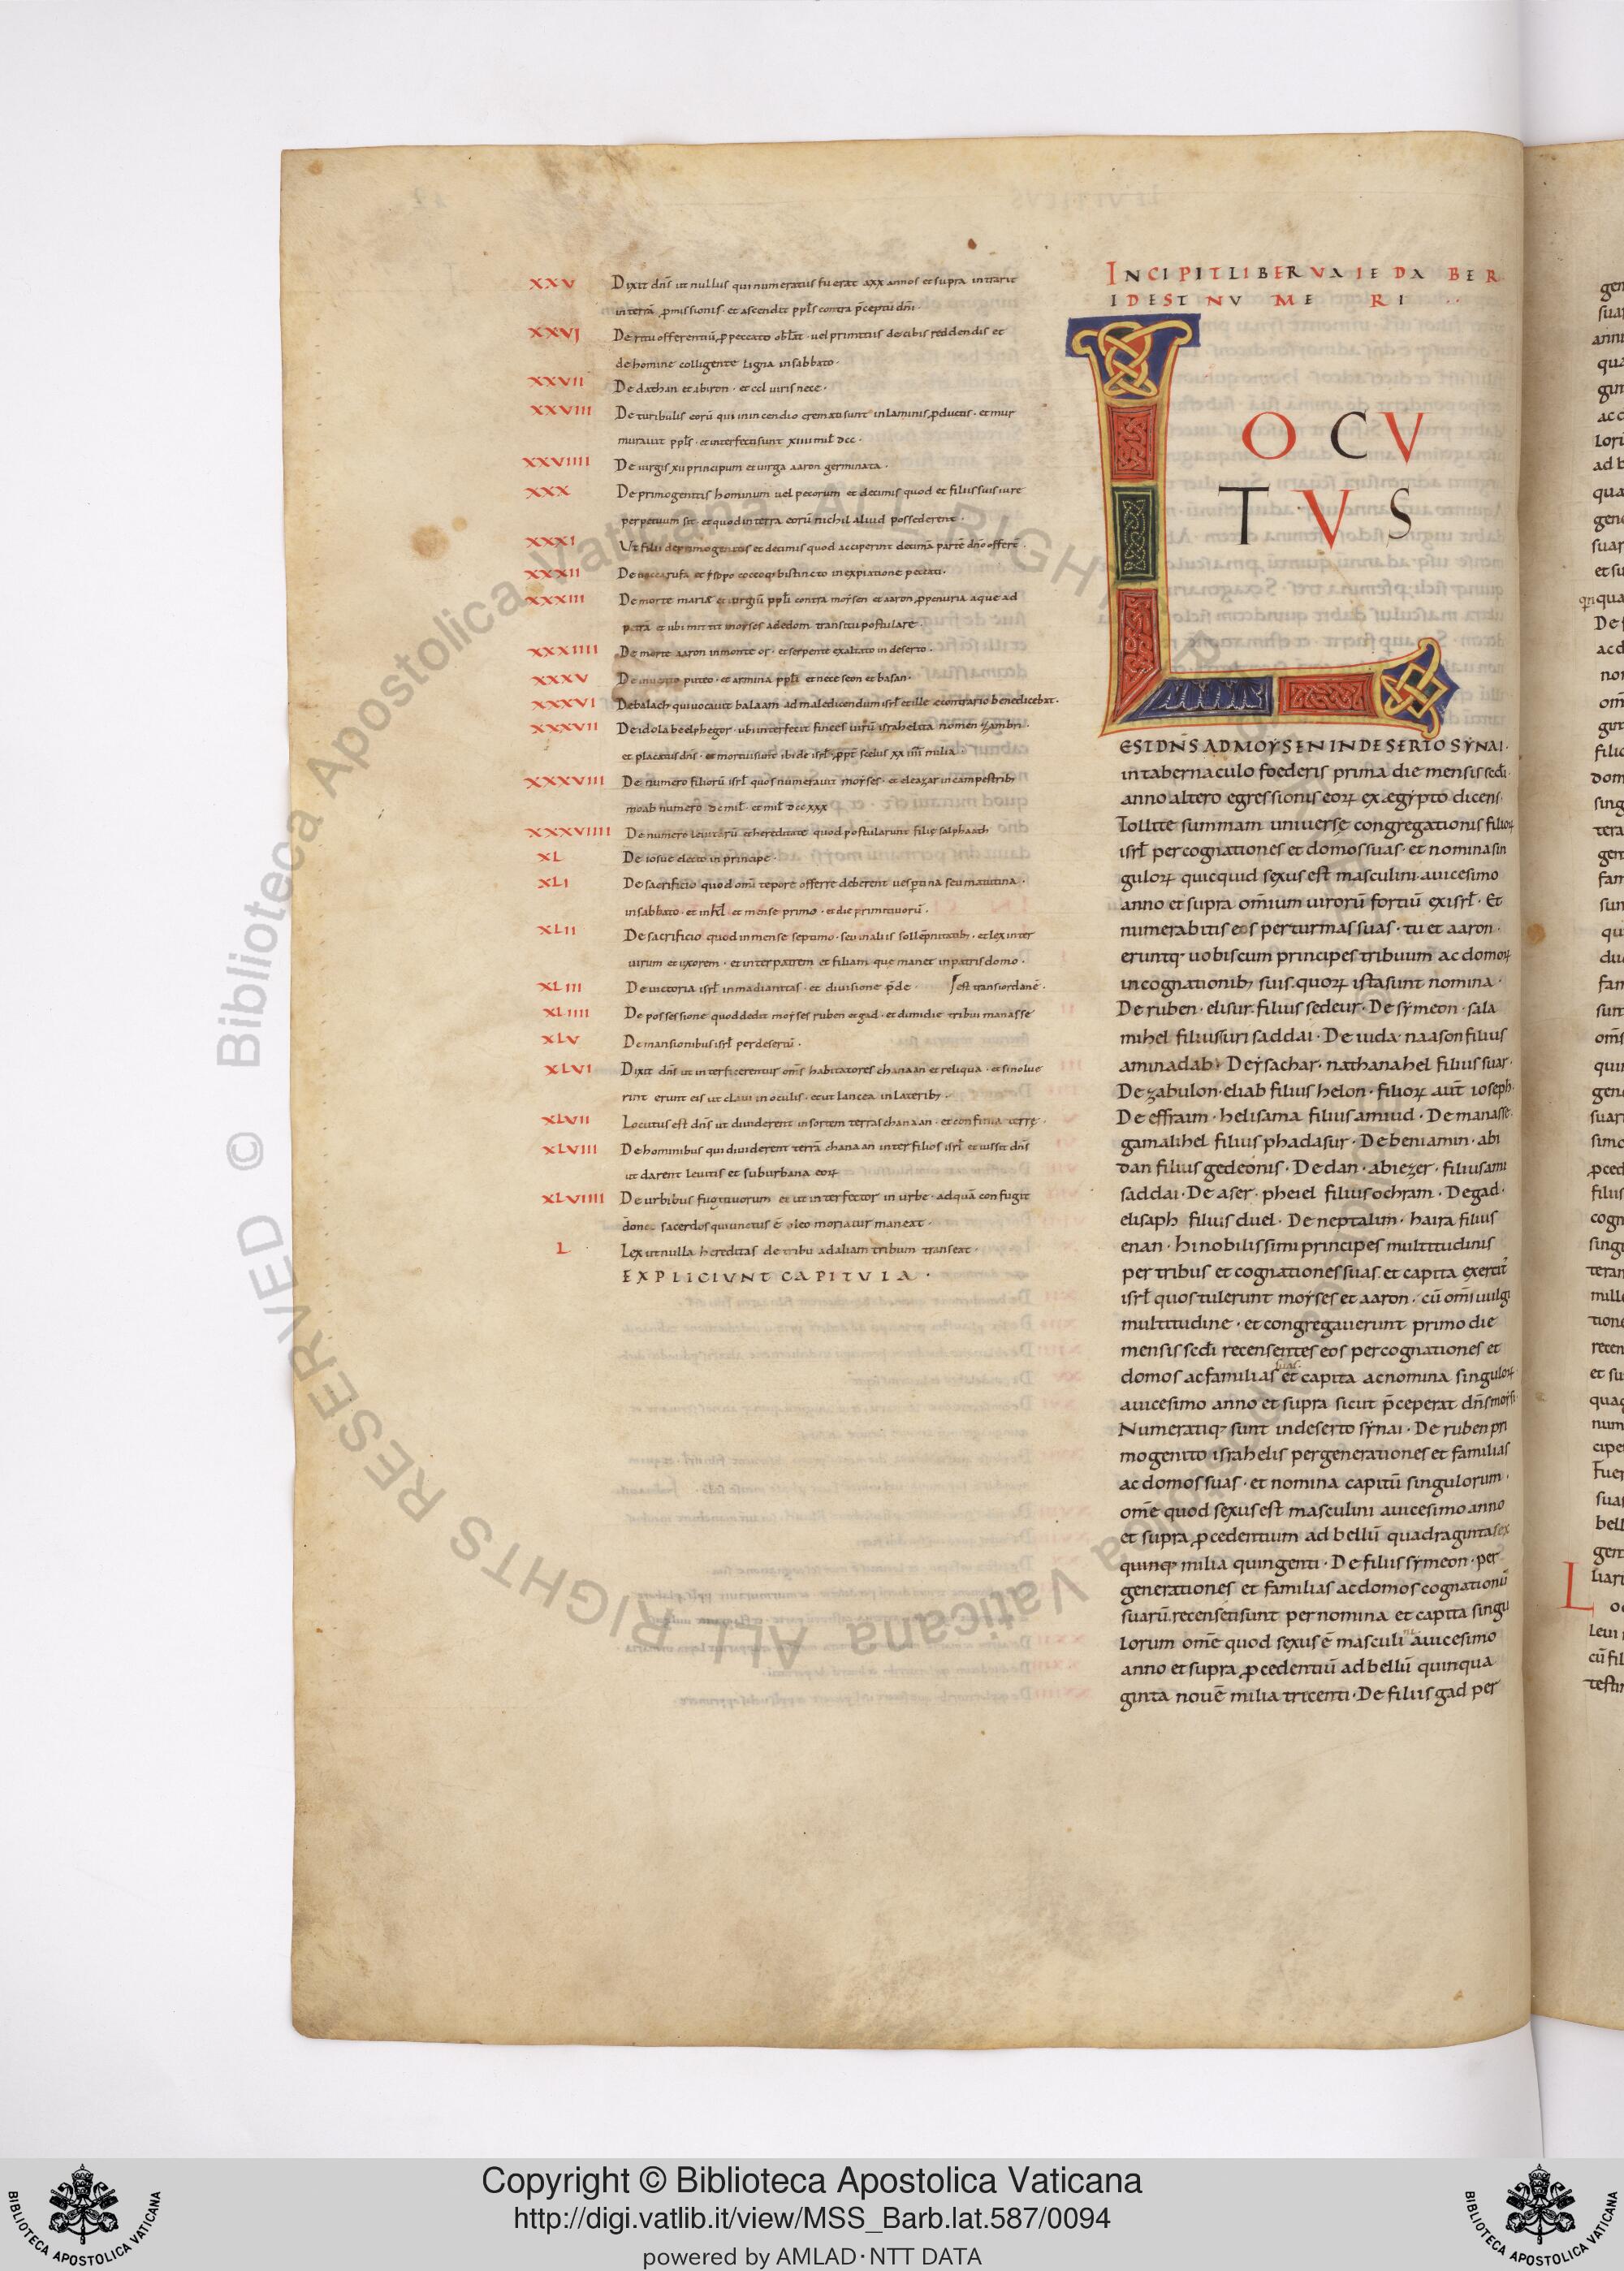 XXV Dixit dn̄s ut nullus qui numeratus fuerat a xx annos et supra intraret
in terrā ꝓmissionis · et ascendit ppl̄s contra p̄ceptū dn̄i ·
XXVI De ritu offerentiū ꝓ peccato · uel primitiis de cibis reddendis et
de homine colligente ligna in sabbato ·
XXVII De dathan et abiron · et ccl uiris nece ·
XXVIII De turibulis eorū qui in incendio cremati sunt in laminis ꝓductis · et mur
murauit ppl̄s · et interfecti sunt xiiii mil̄ dcc ·
XXVIIII De uirgis xii principum et uirga aaron germinata ·
XXX De primogenitis hominum uel pecorum et decimis quod et filiis suis iure
perpetuum sit · et quod in terra eorū nichil aliud possederent ·
XXXI Ut filii de primogenitis et decimis quod acciperint decimā partē dn̄o offerr̄t ·
XXXII De uacca rufa et ysopo coccoq; bistincto in expiatione peccati ·
XXXIII De morte mariæ et iurgiū ppl̄i contra moysen et aaron ꝓ penuria aque ad
petrā et ubi mittit moyses ad edom transitū postulare ·
XXXIIII De morte aaron in monte or · et serpente exaltato in deserto ·
XXXV De puteo · et armina ppl̄i et nece seon et basan ·
XXXVI De balach qui uocauit balaam ad maledicendum isrl̄ et ille econtrario benedicebat ·
XXXVII De idola beelphegor · ubi interfecit finees uirū israhelita nomen zambri ·
et placatus dn̄s · et mortui sunt ibide isrl̄ ꝓpt̄ scelus xx iiii milia ·
XXXVIII De numero filiorū isrl̄ quos numerauit moyses · et eleazar in campestrib;
moab numero dc mil̄ · et mil̄ dccxxx
XXXVIIII De numero leuitarū et hereditate quod postularunt filie salphaath
XL De iosue electo in principe ·
XLI De sacrificio quod om̄i tēpore offerre deberent uespertina seu matutina ·
in sabbato · et in kl̄ · et mense primo · et die primitiuorū ·
XLII De sacrificio quod in mense septimo · seu in aliis sollēpnitatib; · et lex inter
uirum et uxorem · et inter patrem et filiam que manet in patris domo ·
XLIII De uictoria isrl̄ in madianitas · et diuisione p̄de · est trans iordanē ·
XLIIII De possessione quod dedit moyses ruben et gad · et dimidie tribui manasse
XLV De mansionibus isrl̄ per desertū ·
XLVI Dixit dn̄s ut interficerentur om̄s habitatores chanaan et reliqua · et si nolue
rint erunt eis ut claui in oculis · et ut lancea in laterib; ·
XLVII Locutus est dn̄s ut diuiderent in sortem terras chanaan · et confinia terrę ·
XLVIII De hominibus qui diuiderent terrā chanaan inter filios isrl̄ et iussit dn̄s
ut darent leuitis et suburbana eoꝝ
XLVIIII De urbibus fugitiuorum et ut interfector in urbe · ad quā confugit
donec sacerdos qui unctus ē oleo moriatur maneat ·
L Lex ut nulla hereditas de tribu ad aliam tribum transeat ·
EXPLICIUNT CAPITULA ·
INCIPIT LIBER VAIEDABER
ID EST NVMERI ··
LOCV
TVS
EST DN̄S AD MOYSEN IN DESERTO SYNAI ·
in tabernaculo foederis prima die mensis scd̄i
anno altero egressionis eoꝝ ex ægypto dicens ·
Tollite summam uniuerse congregationis filioꝝ
isrl̄ per cognationes et domos suas · et nomina sin
guloꝝ quicquid sexus est masculini · a uicesimo
anno et supra om̄ium uirorū fortiū ex isrl̄ · Et
numerabitis eos per turmas suas · tu et aaron ·
eruntq; uobiscum principes tribuum ac domoꝝ
in cognationib; suis · quoꝝ ista sunt nomina ·
De ruben · elisur filius sedeur · De symeon · sala
mihel filius suri saddai · De iuda · naason filius
aminadab · De ysachar · nathanahel filius suar ·
De zabulon · eliab filius helon · filioꝝ aut̄ ioseph ·
De effraim · helisama filius amiud · De manasse ·
gamalihel filius phadasur · De beniamin · abi
dan filius gedeonis · De dan · abiezer · filius ami
saddai · De aser · pheiel filius ochram · De gad ·
elisaph filius duel · De neptalim · haira filius
enan · Hi nobilissimi principes multitudinis
per tribus et cognationes suas · et capita exercit̄
isrl̄ quos tulerunt moyses et aaron · cū om̄i uulgi
multitudine · et congregauerunt primo die
mensis scd̄i recensentes eos per cognationes et
domos ac familias suas · et capita ac nomina singuloꝝ
a uicesimo anno et supra sicut p̄ceperat dn̄s moysi ·
Numeratiq; sunt in deserto synai · De ruben pri
mogenito israhelis per generationes et familias
ac domos suas · et nomina capitū singulorum ·
om̄e quod sexus est masculini a uicesimo anno
et supra ꝓcedentium ad bellū quadraginta sex
quinq; milia quingenti · De filiis symeon · per
generationes et familias ac domos cognationū
suarū recensiti sunt per nomina et capita singu
lorum om̄e quod sexus ē masculini a uicesimo
anno et supra ꝓcedentiū ad bellū quinqua
ginta nouē milia tricenti · De filiis gad per
Copyright © Biblioteca Apostolica Vaticana
http://digi.vatlib.it/view/MSS_Barb.lat.587/0094
powered by AMLAD·NTT DATA
BIBLIOTECA APOSTOLICA VATICANA
BIBLIOTECA APOSTOLICA VATICANA